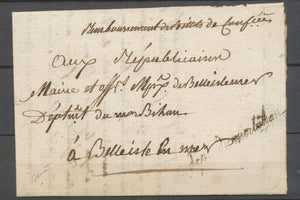 Remboursement de Billets de Confiance
aux Républicains
Maire et off. Mp. de Belleisleenmer
Dépt.mt du morBihan
à Belleisle En mer